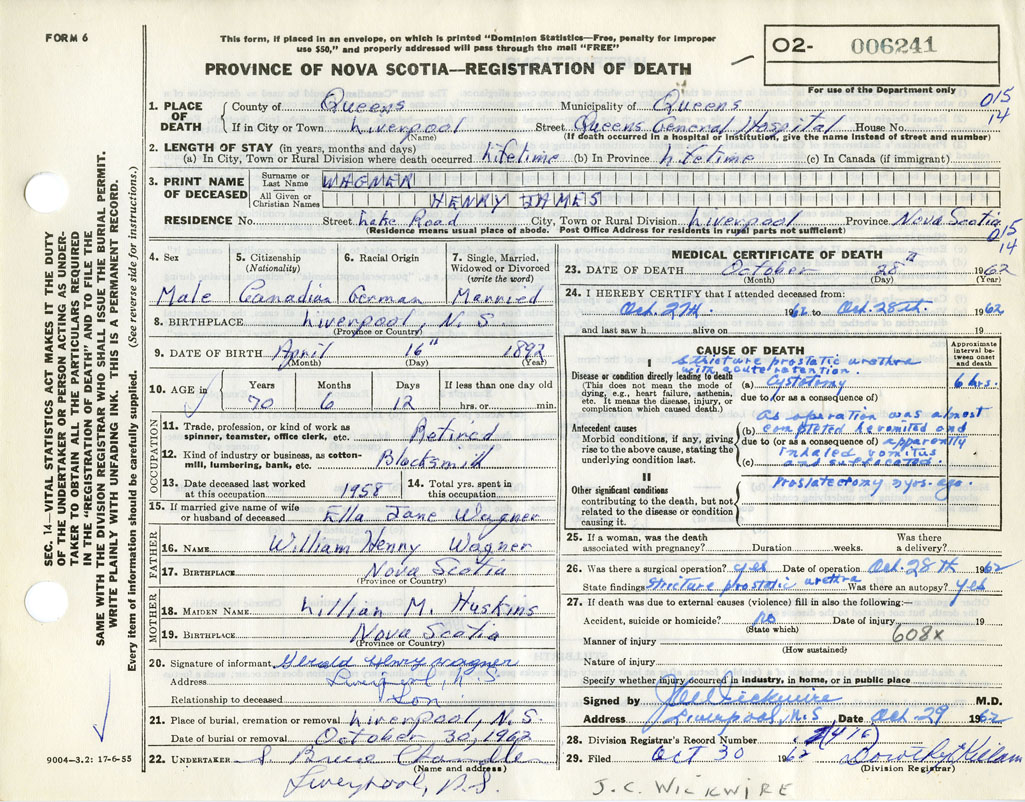 FORM 6
This form, if placed in an envelope, on which is printed "Dominion Statistics—Free, penalty for improper
use $50," and properly addressed will pass through the mail "FREE"
PROVINCE OF NOVA SCOTIA—REGISTRATION OF DEATH
O2- 006241
For use of the Department only
015
14
1. PLACE OF DEATH County of Queens Municipality of Queens
If in City or Town Liverpool Street Queens General Hospital House No.
(Name) (If death occurred in hospital or institution, give the name instead of street and number)
2. LENGTH OF STAY (in years, months and days)
(a) In City, Town or Rural Division where death occurred Lifetime (b) In Province Lifetime (c) In Canada (if immigrant)
3. PRINT NAME OF DECEASED Surname or Last Name WAGNER
All Given or Christian Names HENRY JAMES
RESIDENCE No. Street Lake Road City, Town or Rural Division Liverpool Province Nova Scotia
(Residence means usual place of abode. Post Office Address for residents in rural parts not sufficient)
015
14
4. Sex 5. Citizenship (Nationality) 6. Racial Origin 7. Single, Married, Widowed or Divorced (write the word)
Male Canadian German Married
8. BIRTHPLACE Liverpool, N.S.
(Province or Country)
9. DATE OF BIRTH April 16" 1892
(Month) (Day) (Year)
10. AGE in Years Months Days If less than one day old
70 6 12 hrs. or min.
OCCUPATION
11. Trade, profession, or kind of work as
spinner, teamster, office clerk, etc. Retired
12. Kind of industry or business, as cotton-
mill, lumbering, bank, etc. Blacksmith
13. Date deceased last worked at this occupation 1958 14. Total yrs. spent in this occupation
15. If married give name of wife
or husband of deceased Ella Jane Wagner
FATHER
16. NAME William Henry Wagner
17. BIRTHPLACE Nova Scotia
(Province or Country)
MOTHER
18. MAIDEN NAME Lillian M. Huskins
19. BIRTHPLACE Nova Scotia
(Province or Country)
20. Signature of informant Gerald Henry Wagner
Address Liverpool, N.S
Relationship to deceased Son
21. Place of burial, cremation or removal Liverpool, N.S.
Date of burial or removal October 30, 1962
22. UNDERTAKER S. Bruce Chandler
(Name and address)
Liverpool, N.S.
MEDICAL CERTIFICATE OF DEATH
23. DATE OF DEATH October 28th 1962
(Month) (Day) (Year)
24. I HEREBY CERTIFY that I attended deceased from:
Oct. 27th. 1962 to Oct. 28th. 1962
and last saw h alive on 19
CAUSE OF DEATH
Approximate interval between onset and death
I
Stricture prostatic urethra
with acute retention.
Disease or condition directly leading to death
(This does not mean the mode of
dying, e.g., heart failure, asthenia,
etc. It means the disease, injury, or
complication which caused death.)
(a) Cystotomy 6 hrs.
due to (or as a consequence of)
Antecedent causes
Morbid conditions, if any, giving
rise to the above cause, stating the
underlying condition last.
As operation was almost
(b) completed he vomited and
due to (or as a consequence of) apparently
inhaled vomitus
(c) and suffocated.
II
Other significant conditions
contributing to the death, but not
related to the disease or condition
causing it.
Prostatectomy yrs. ago.
25. If a woman, was the death Was there
associated with pregnancy? Duration weeks. a delivery?
26. Was there a surgical operation? yes Date of operation Oct. 28th 1962
State findings stricture prostatic urethra Was there an autopsy? yes
27. If death was due to external causes (violence) fill in also the following:—
Accident, suicide or homicide? no Date of injury 19
(State which)
608x
Manner of injury
(How sustained)
Nature of injury
Specify whether injury occurred in industry, in home, or in public place
Signed by J C Wickwire M.D.
Address Liverpool, N.S Date Oct. 29 1962
28. Division Registrar's Record Number (416)
29. Filed Oct 30 1962 Dorothy Kellam
(Division Registrar)
J.C. WICKWIRE
SEC. 14—VITAL STATISTICS ACT MAKES IT THE DUTY
OF THE UNDERTAKER OR PERSON ACTING AS UNDER-
TAKER TO OBTAIN ALL THE PARTICULARS REQUIRED
IN THE "REGISTRATION OF DEATH" AND TO FILE THE
SAME WITH THE DIVISION REGISTRAR WHO SHALL ISSUE THE BURIAL PERMIT.
WRITE PLAINLY WITH UNFADING INK. THIS IS A PERMANENT RECORD.
Every item of information should be carefully supplied. (See reverse side for instructions.)
9004—3.2: 17-6-55